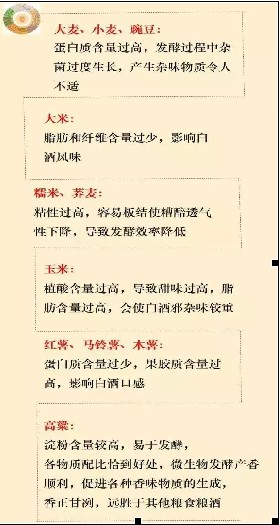 大麦、小麦、豌豆：
蛋白质含量过高，发酵过程中杂
菌过度生长，产生杂味物质令人
不适
大米：
脂肪和纤维含量过少，影响白
酒风味
糯米、荞麦：
粘性过高，容易板结使糟醅透气
性下降，导致发酵效率降低
玉米：
植酸含量过高，导致甜味过高，脂
肪含量过高，会使白酒邪杂味较重
红薯、马铃薯、木薯：
蛋白质含量过少，果胶质含量过
高，影响白酒口感
高粱：
淀粉含量较高，易于发酵，
各物质配比恰到好处，微生物发酵产香
顺利，促进各种香味物质的生成，
香正甘冽，远胜于其他粮食粮酒